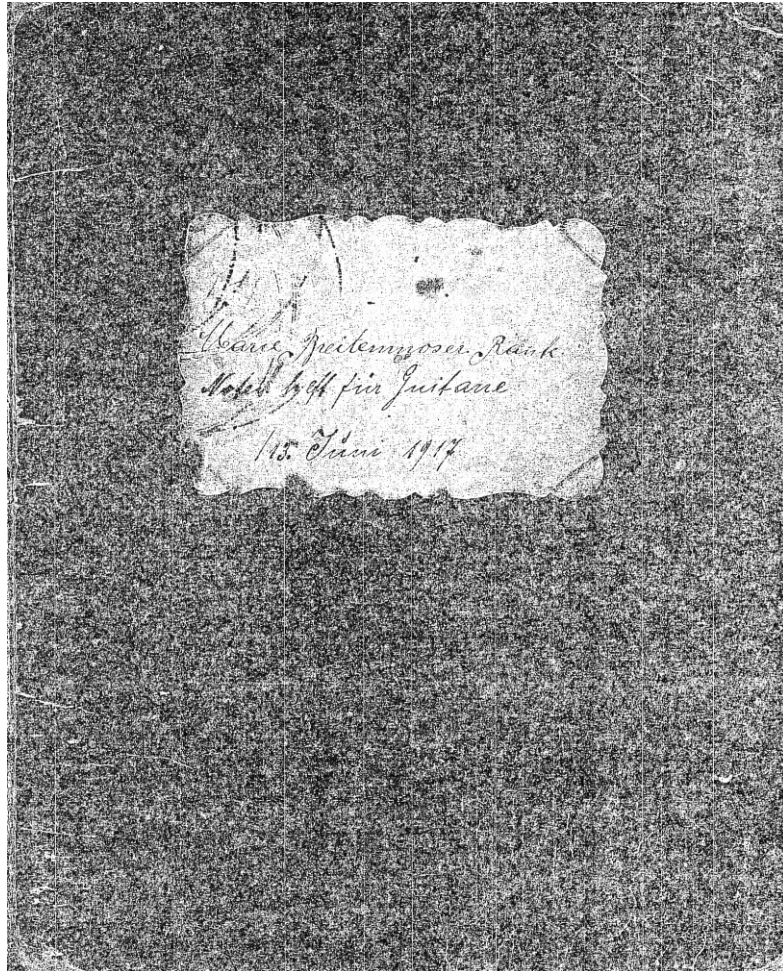 Marie Breitenmoser Rank.
Noten heft für Guitarre
15. Juni 1917